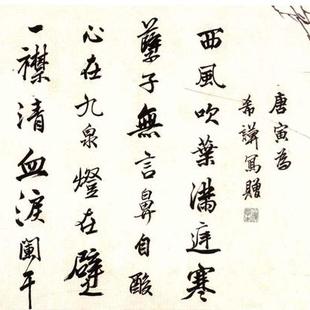 西風吹葉滿庭寒
孽子無言鼻自酸
心在九泉燈在壁
一襟清血淚闌干
唐寅為
希謙寫贈